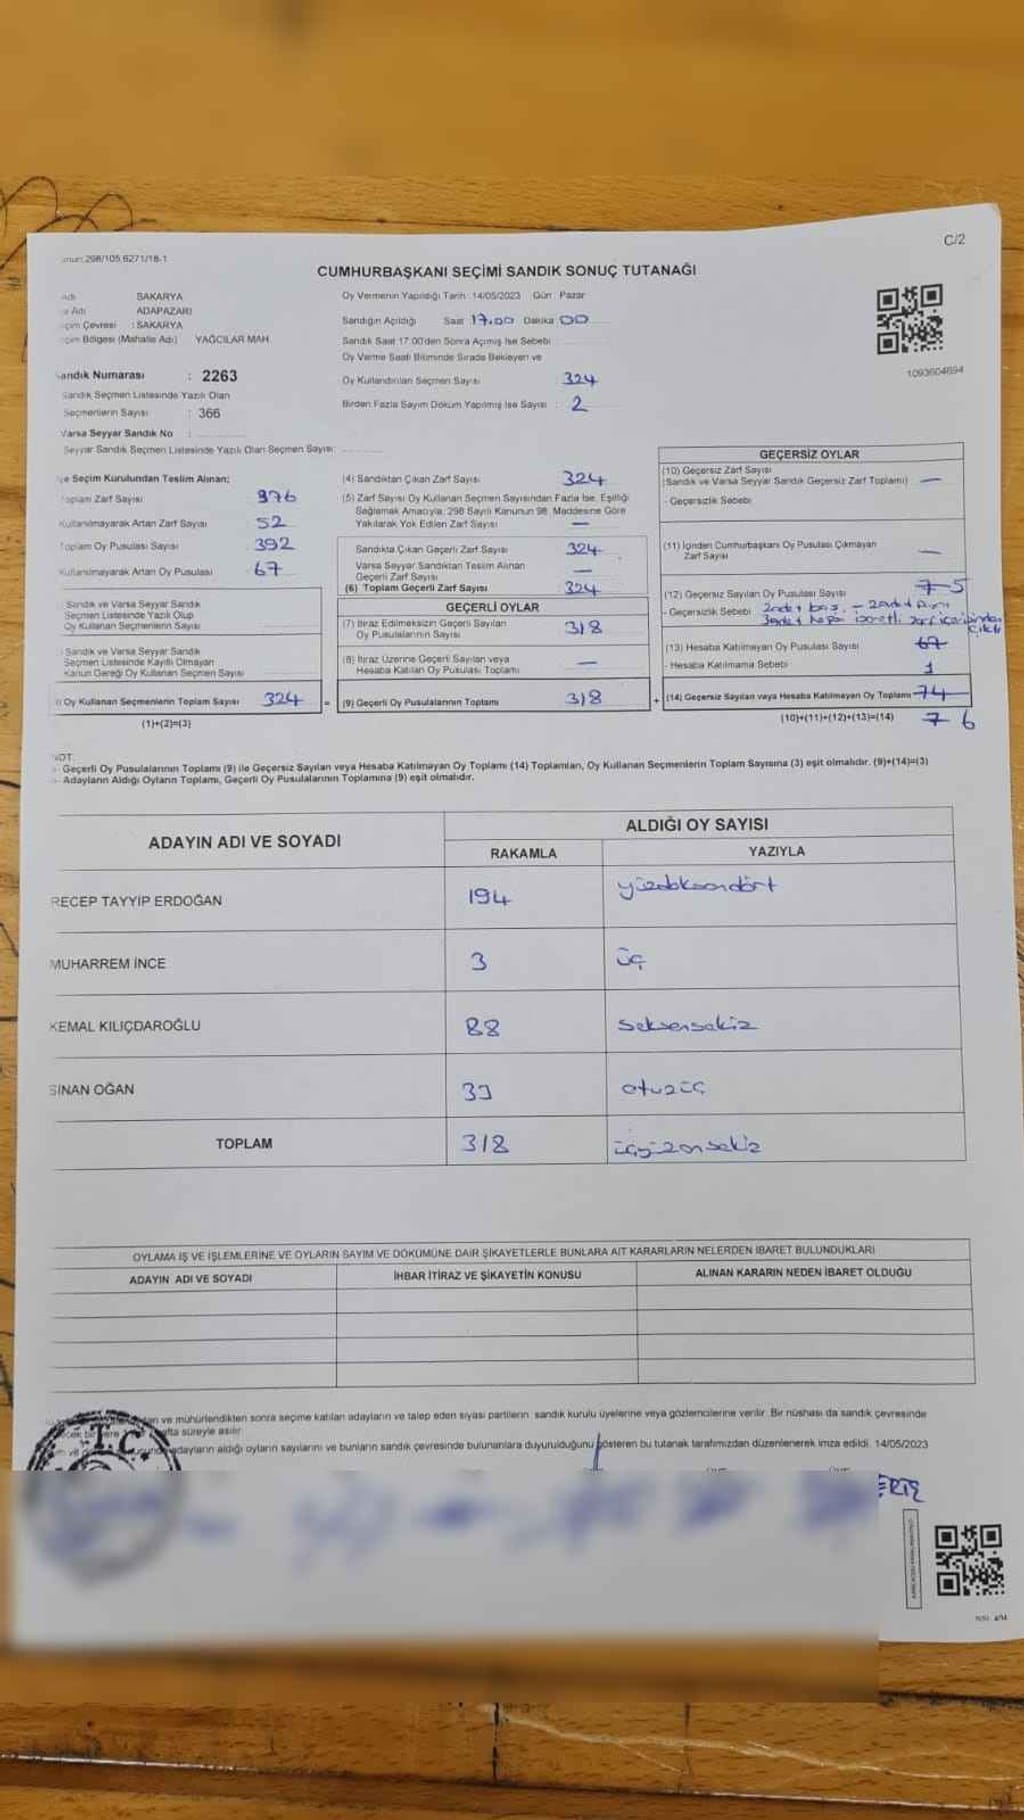 298/105,6271/18-1
C/2
CUMHURBAŞKANI SEÇİMİ SANDIK SONUÇ TUTANAĞI
SAKARYA
Adı ADAPAZARI
Çevresi : SAKARYA
Bölgesi (Mahalle Adı) YAĞCILAR MAH.
Sandık Numarası : 2263
Sandık Seçmen Listesinde Yazılı Olan
Seçmenlerin Sayısı : 366
Varsa Seyyar Sandık No :
Seyyar Sandık Seçmen Listesinde Yazılı Olan Seçmen Sayısı:
Oy Vermenin Yapıldığı Tarih : 14/05/2023 Gün : Pazar
Sandığın Açıldığı Saat 17.00 Dakika 00
Sandık Saat 17:00'den Sonra Açılmış İse Sebebi
Oy Verme Saati Bitiminde Sırada Bekleyen ve
Oy Kullandırılan Seçmen Sayısı : 324
Birden Fazla Sayım Döküm Yapılmış İse Sayısı : 2
1093604694
Seçim Kurulundan Teslim Alınan:
Toplam Zarf Sayısı 376
Kullanılmayarak Artan Zarf Sayısı 52
Toplam Oy Pusulası Sayısı 392
Kullanılmayarak Artan Oy Pusulası 67
Sandık ve Varsa Seyyar Sandık
Seçmen Listesinde Yazılı Olup
Oy Kullanan Seçmenlerin Sayısı
Sandık ve Varsa Seyyar Sandık
Seçmen Listesinde Kayıtlı Olmayan
Kanun Gereği Oy Kullanan Seçmen Sayısı
Oy Kullanan Seçmenlerin Toplam Sayısı 324 =
(1)+(2)=(3)
(4) Sandıktan Çıkan Zarf Sayısı 324
(5) Zarf Sayısı Oy Kullanan Seçmen Sayısından Fazla İse, Eşitliği
Sağlamak Amacıyla, 298 Sayılı Kanunun 98. Maddesine Göre
Yakılarak Yok Edilen Zarf Sayısı —
Sandıkta Çıkan Geçerli Zarf Sayısı 324
Varsa Seyyar Sandıktan Teslim Alınan
Geçerli Zarf Sayısı —
(6) Toplam Geçerli Zarf Sayısı 324
GEÇERLİ OYLAR
(7) İtiraz Edilmeksizin Geçerli Sayılan
Oy Pusulalarının Sayısı 318
(8) İtiraz Üzerine Geçerli Sayılan veya
Hesaba Katılan Oy Pusulası Toplamı —
(9) Geçerli Oy Pusulalarının Toplamı 318 +
GEÇERSİZ OYLAR
(10) Geçersiz Zarf Sayısı
(Sandık ve Varsa Seyyar Sandık Geçersiz Zarf Toplamı) —
- Geçersizlik Sebebi
(11) İçinden Cumhurbaşkanı Oy Pusulası Çıkmayan
Zarf Sayısı —
(12) Geçersiz Sayılan Oy Pusulası Sayısı 7 5
- Geçersizlik Sebebi 2 adet boş,
(13) Hesaba Katılmayan Oy Pusulası Sayısı
- Hesaba Katılmama Sebebi 1
(14) Geçersiz Sayılan veya Hesaba Katılmayan Oy Toplamı 74
(10)+(11)+(12)+(13)=(14) 7 6
NOT:
- Geçerli Oy Pusulalarının Toplamı (9) ile Geçersiz Sayılan veya Hesaba Katılmayan Oy Toplamı (14) Toplamları, Oy Kullanan Seçmenlerin Toplam Sayısına (3) eşit olmalıdır. (9)+(14)=(3)
- Adayların Aldığı Oyların Toplamı, Geçerli Oy Pusulalarının Toplamına (9) eşit olmalıdır.
ADAYIN ADI VE SOYADI ALDIĞI OY SAYISI
RAKAMLA YAZIYLA
RECEP TAYYİP ERDOĞAN 194 yüzdoksandört
MUHARREM İNCE 3 üç
KEMAL KILIÇDAROĞLU 88 seksensekiz
SİNAN OĞAN 33 otuzüç
TOPLAM 318 üçyüzonsekiz
OYLAMA İŞ VE İŞLEMLERİNE VE OYLARIN SAYIM VE DÖKÜMÜNE DAİR ŞİKAYETLERLE BUNLARA AİT KARARLARIN NELERDEN İBARET BULUNDUKLARI
ADAYIN ADI VE SOYADI İHBAR İTİRAZ VE ŞİKAYETİN KONUSU ALINAN KARARIN NEDEN İBARET OLDUĞU
ve mühürlendikten sonra seçime katılan adayların ve talep eden siyasi partilerin sandık kurulu üyelerine veya gözlemcilerine verilir. Bir nüshası da sandık çevresinde
süreyle asılır.
adayların aldığı oyların sayılarını ve bunların sandık çevresinde bulunanlara duyurulduğunu gösteren bu tutanak tarafımızdan düzenlenerek imza edildi. 14/05/2023
T.C.